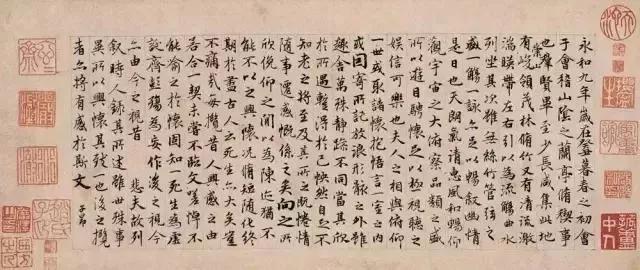 永和九年歲在癸丑暮春之初會
于會稽山陰之蘭亭脩稧事
也群賢畢至少長咸集此地
有崇山峻領茂林脩竹又有清流激
湍暎帶左右引以為流觴曲水
列坐其次雖無絲竹管弦之
盛一觴一詠亦足以暢敘幽情
是日也天朗氣清惠風和暢仰
觀宇宙之大俯察品類之盛
所以遊目騁懷足以極視聽之
娛信可樂也夫人之相與俯仰
一世或取諸懷抱悟言一室之內
或因寄所託放浪形骸之外雖
趣舍萬殊靜躁不同當其欣
於所遇暫得於己怏然自足不
知老之將至及其所之既惓情
隨事遷感慨係之矣向之所
欣俛仰之間以為陳迹猶不
能不以之興懷況脩短隨化終
期於盡古人云死生亦大矣豈
不痛哉每攬昔人興感之由
若合一契未嘗不臨文嗟悼不
能喻之於懷固知一死生為虛
誕齊彭殤為妄作後之視今
亦由今之視昔悲夫故列
敘時人錄其所述雖世殊事
異所以興懷其致一也後之攬
者亦將有感於斯文
子昂